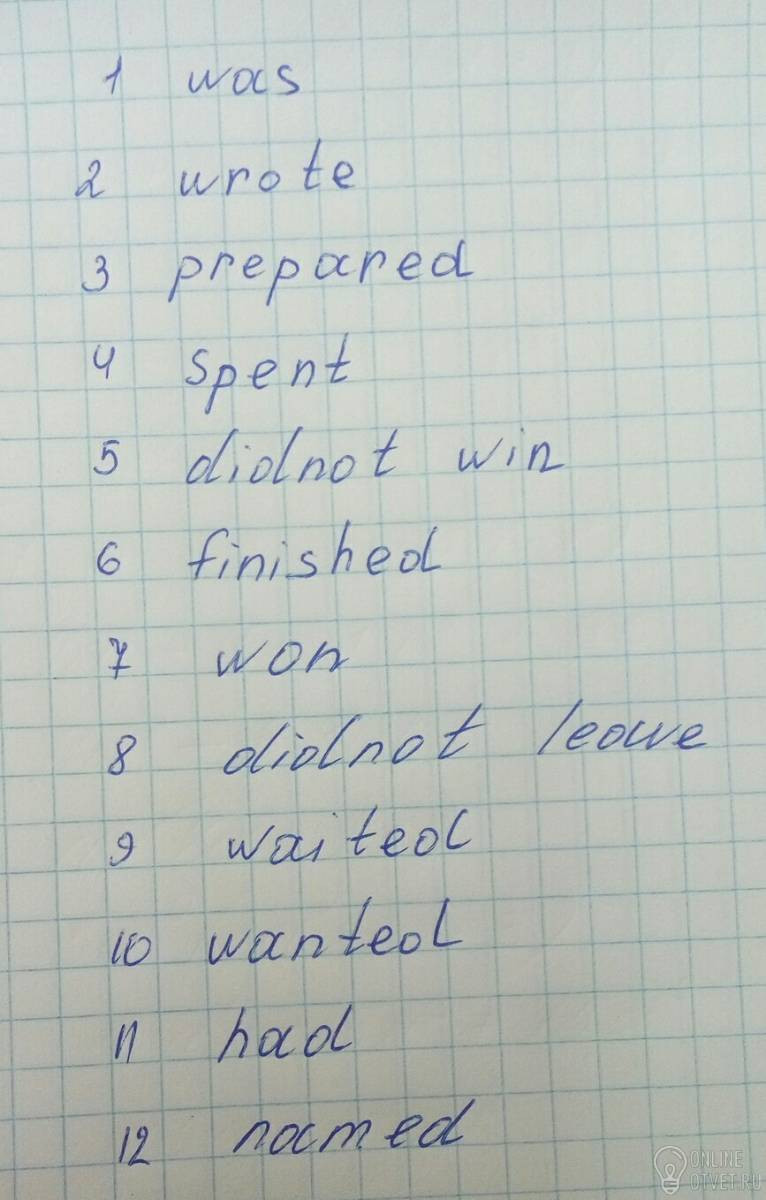 1 was
2 wrote
3 prepared
4 spent
5 didnot win
6 finished
7 won
8 didnot leave
9 waited
10 wanted
11 had
12 named
ONLINE
OTVET.RU